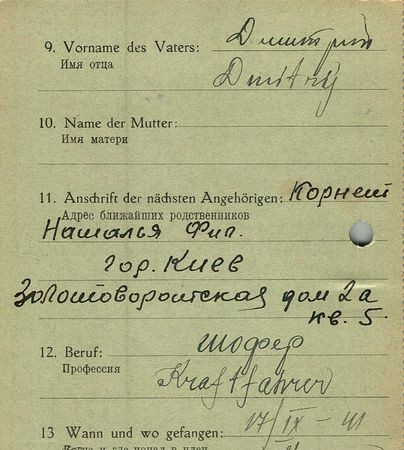 9. Vorname des Vaters: Дмитрий
Имя отца
Dmitrij
10. Name der Mutter:
Имя матери
11. Anschrift der nächsten Angehörigen: Корнет
Адрес ближайших родственников
Наталья Фил.
гор. Киев
Золотоворотская дом 2а
кв. 5.
12. Beruf: шофер
Профессия
Kraftfahrer
13 Wann und wo gefangen: 17/IX - 41